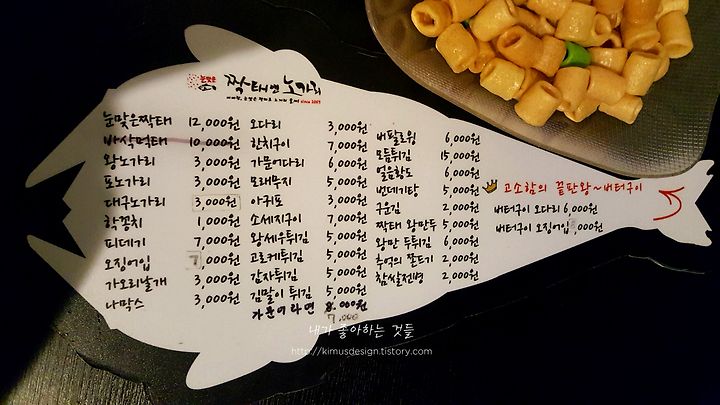 눈맞은
짝태엔 노가리
since 2009
눈맞은짝태 12,000원
바삭먹태 10,000원
왕노가리 3,000원
포노가리 3,000원
대구노가리 3,000원
학꽁치 1,000원
피데기 7,000원
오징어입 7,000원
가오리날개 3,000원
나막스 3,000원
오다리 3,000원
한치구이 7,000원
가문어다리 6,000원
모래무지 5,000원
아귀포 3,000원
소세지구이 7,000원
왕새우튀김 5,000원
고로케튀김 5,000원
감자튀김 5,000원
김말이 튀김 5,000원
가문어라면 8,000원
7,000
버팔로윙 6,000원
모듬튀김 15,000원
얼음황도 6,000원
번데기탕 5,000원
구운김 2,000원
짝태 왕만두 5,000원
왕만두튀김 6,000원
추억의 쫀드기 2,000원
찹쌀전병 2,000원
고소함의 끝판왕~버터구이
버터구이 오다리 6,000원
버터구이 오징어입 ,000원
내가 좋아하는 것들
http://kimusdesign.tistory.com